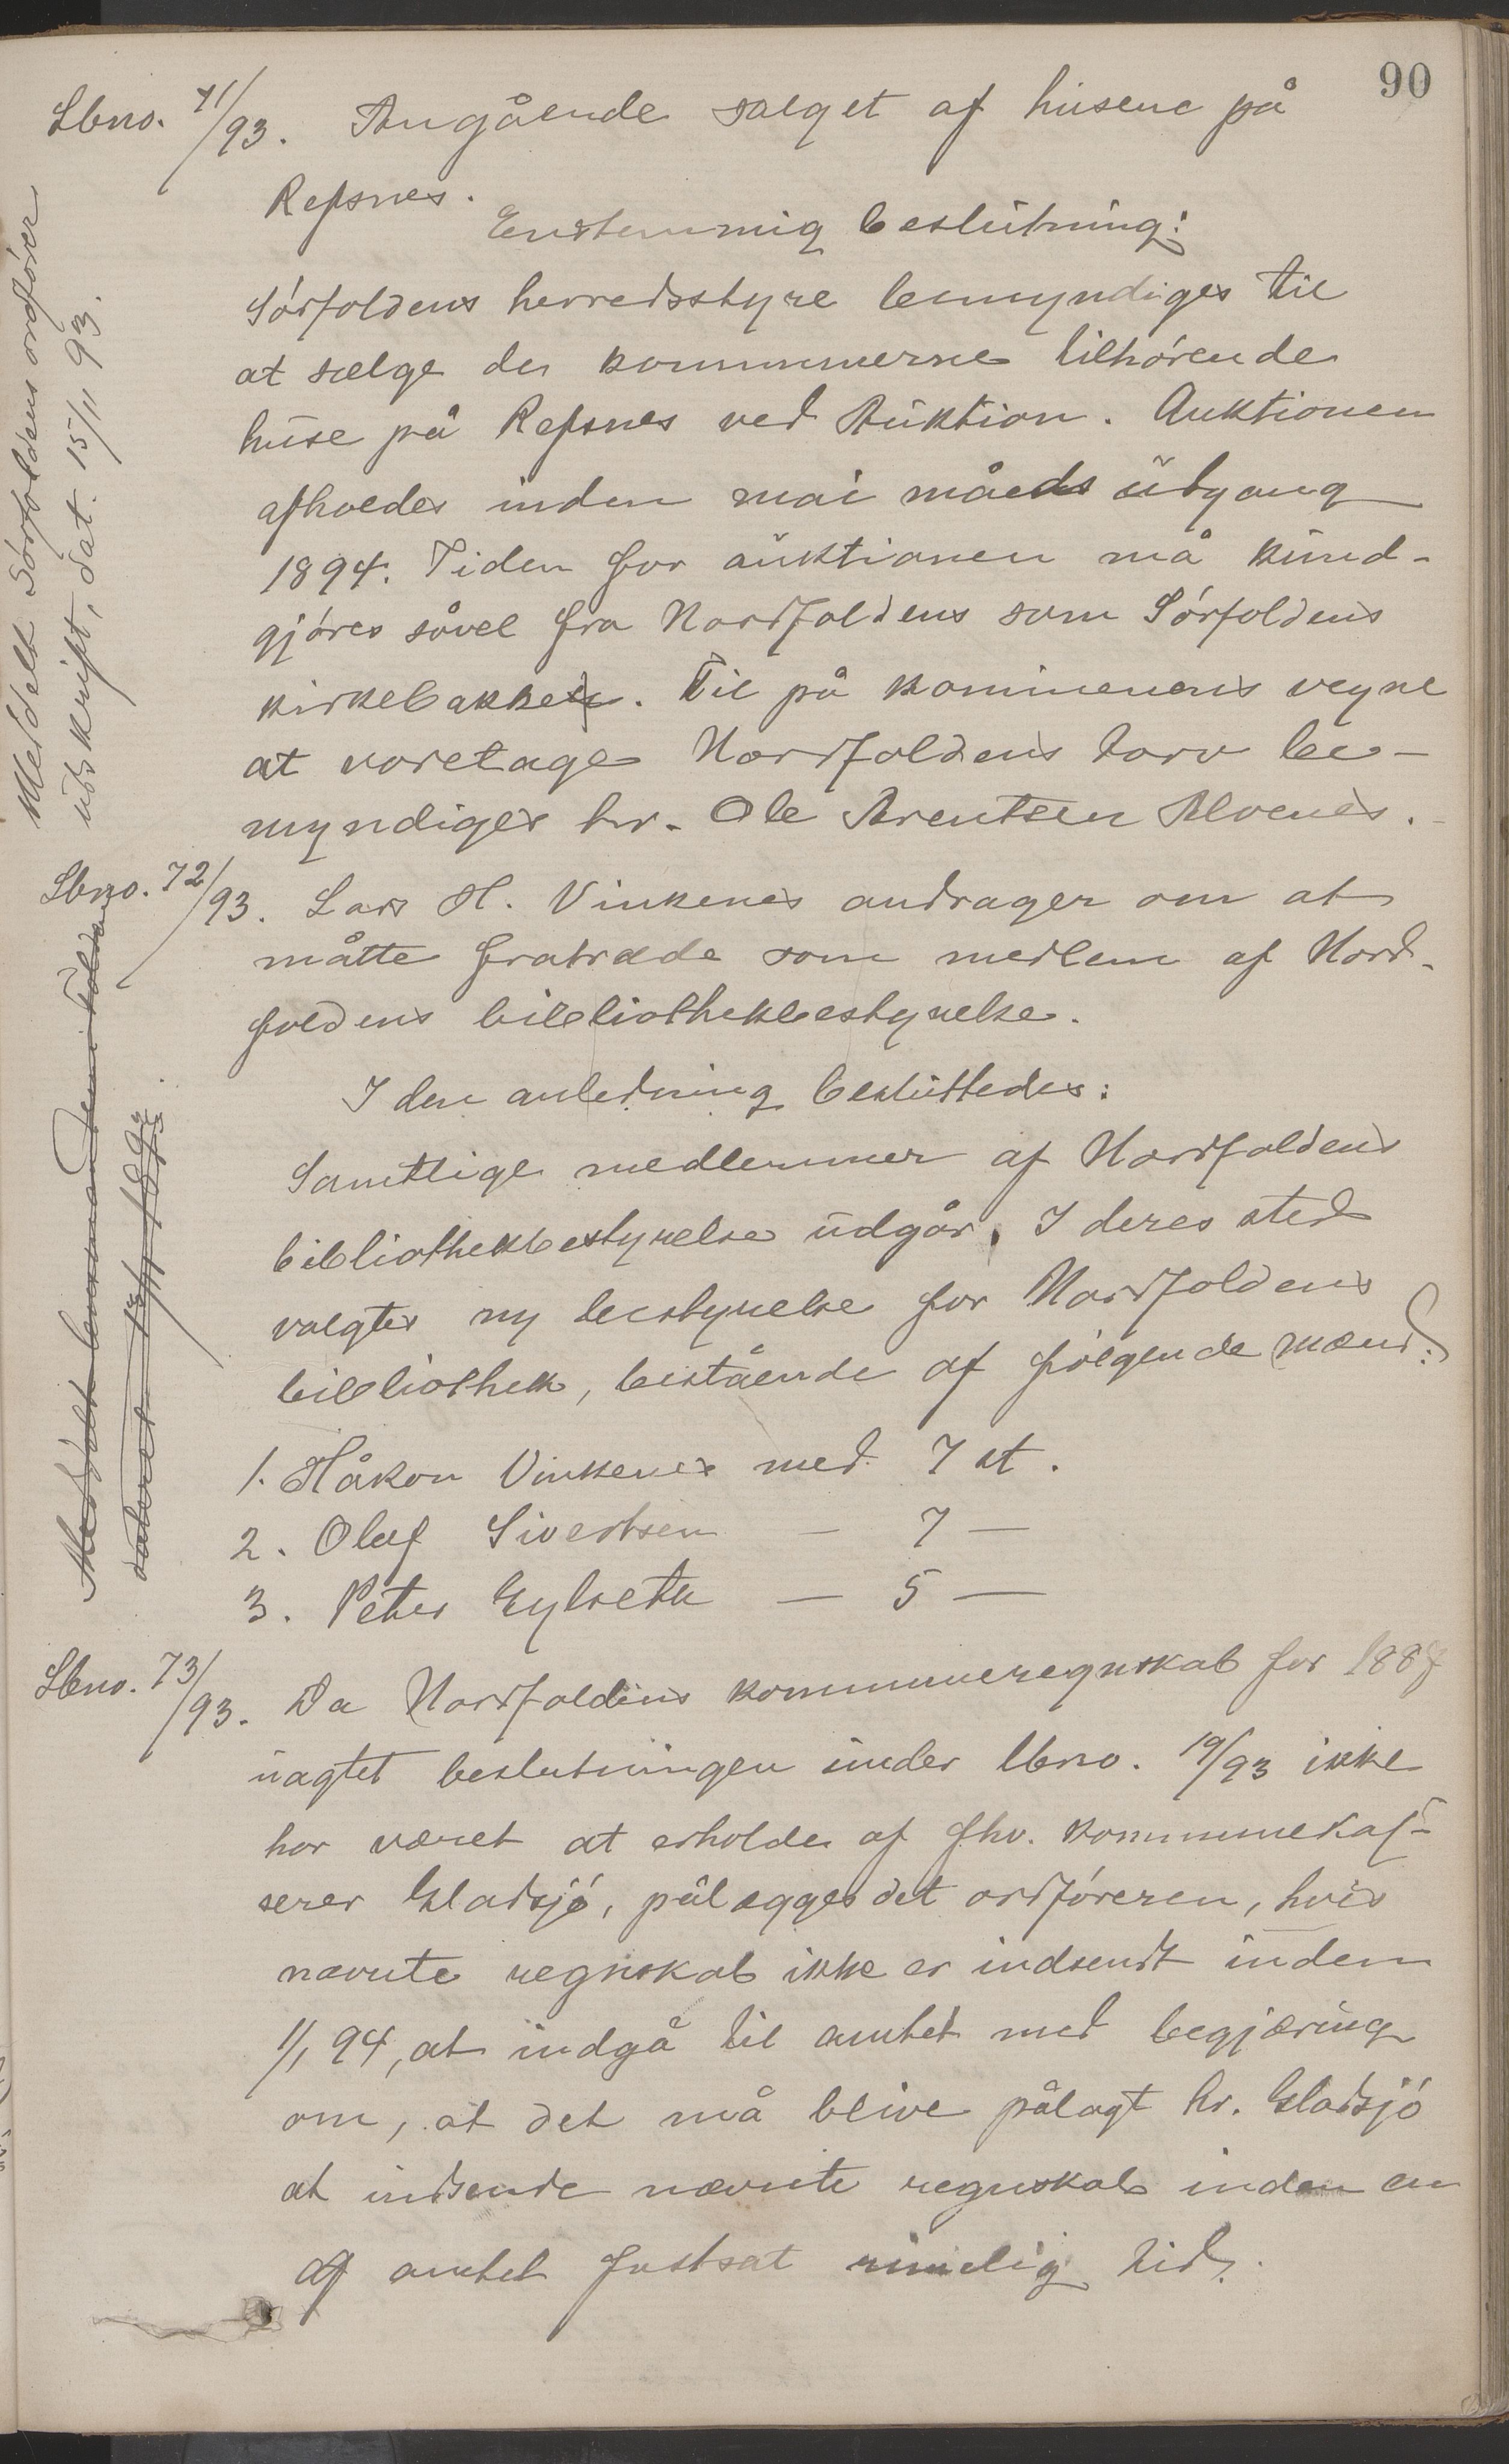 90
Lbno. 71/93. Angående salget af husene på
Refsnes.
Enstemmig beslutning:
Sórfoldens herredsstyre bemyndiges til
at sælge de kommunerne tilhórende
huse på Refsnes ved Auktion. Auktionen
afholdes inden mai måneds udgang
1894. Tiden for auktionen må kund-
gjóres såvel fra Nordfoldens som Sórfoldens
kirkebakke. Til på kommunens vegne
at varetage Nordfoldens tarv be-
myndiges hr. Ole Arentsen Alvenes.
Meddelt Sórfoldens ordfórer
udskrift, dat. 15/11 93.
Lbno. 72/93. Lars H. Vinkenes andrager om at
måtte fratræde som medlem af Nord-
foldens bibliothekbestyrelse.
I den anledning besluttedes:
Samtlige medlemmer af Nordfoldens
bibliothekbestyrelse udgår. I deres sted
valgtes ny bestyrelse for Nordfoldens
bibliothek, bestående af fólgende mænd:
1. Håkon Vinkenes med 7 st.
2. Oluf Sivertsen — 7 —
3. Peter Eylseta — 5 —
Meddelt
dateret
Lbno. 73/93. Da Nordfoldens kommuneregnskab for 188
uagtet beslutningen under lbno. 19/93 ikke
har været at erholde af fhv. kommunekas-
serer Gladsjó, pålægges det ordfóreren, hvis
nævnte regnskab ikke er indsendt inden
1/1 94, at indgå til amtet med begjæring
om, at det må blive pålagt hr. Gladsjó
at indsende nævnte regnskab inden en
af amtet fastsat rimelig tid.